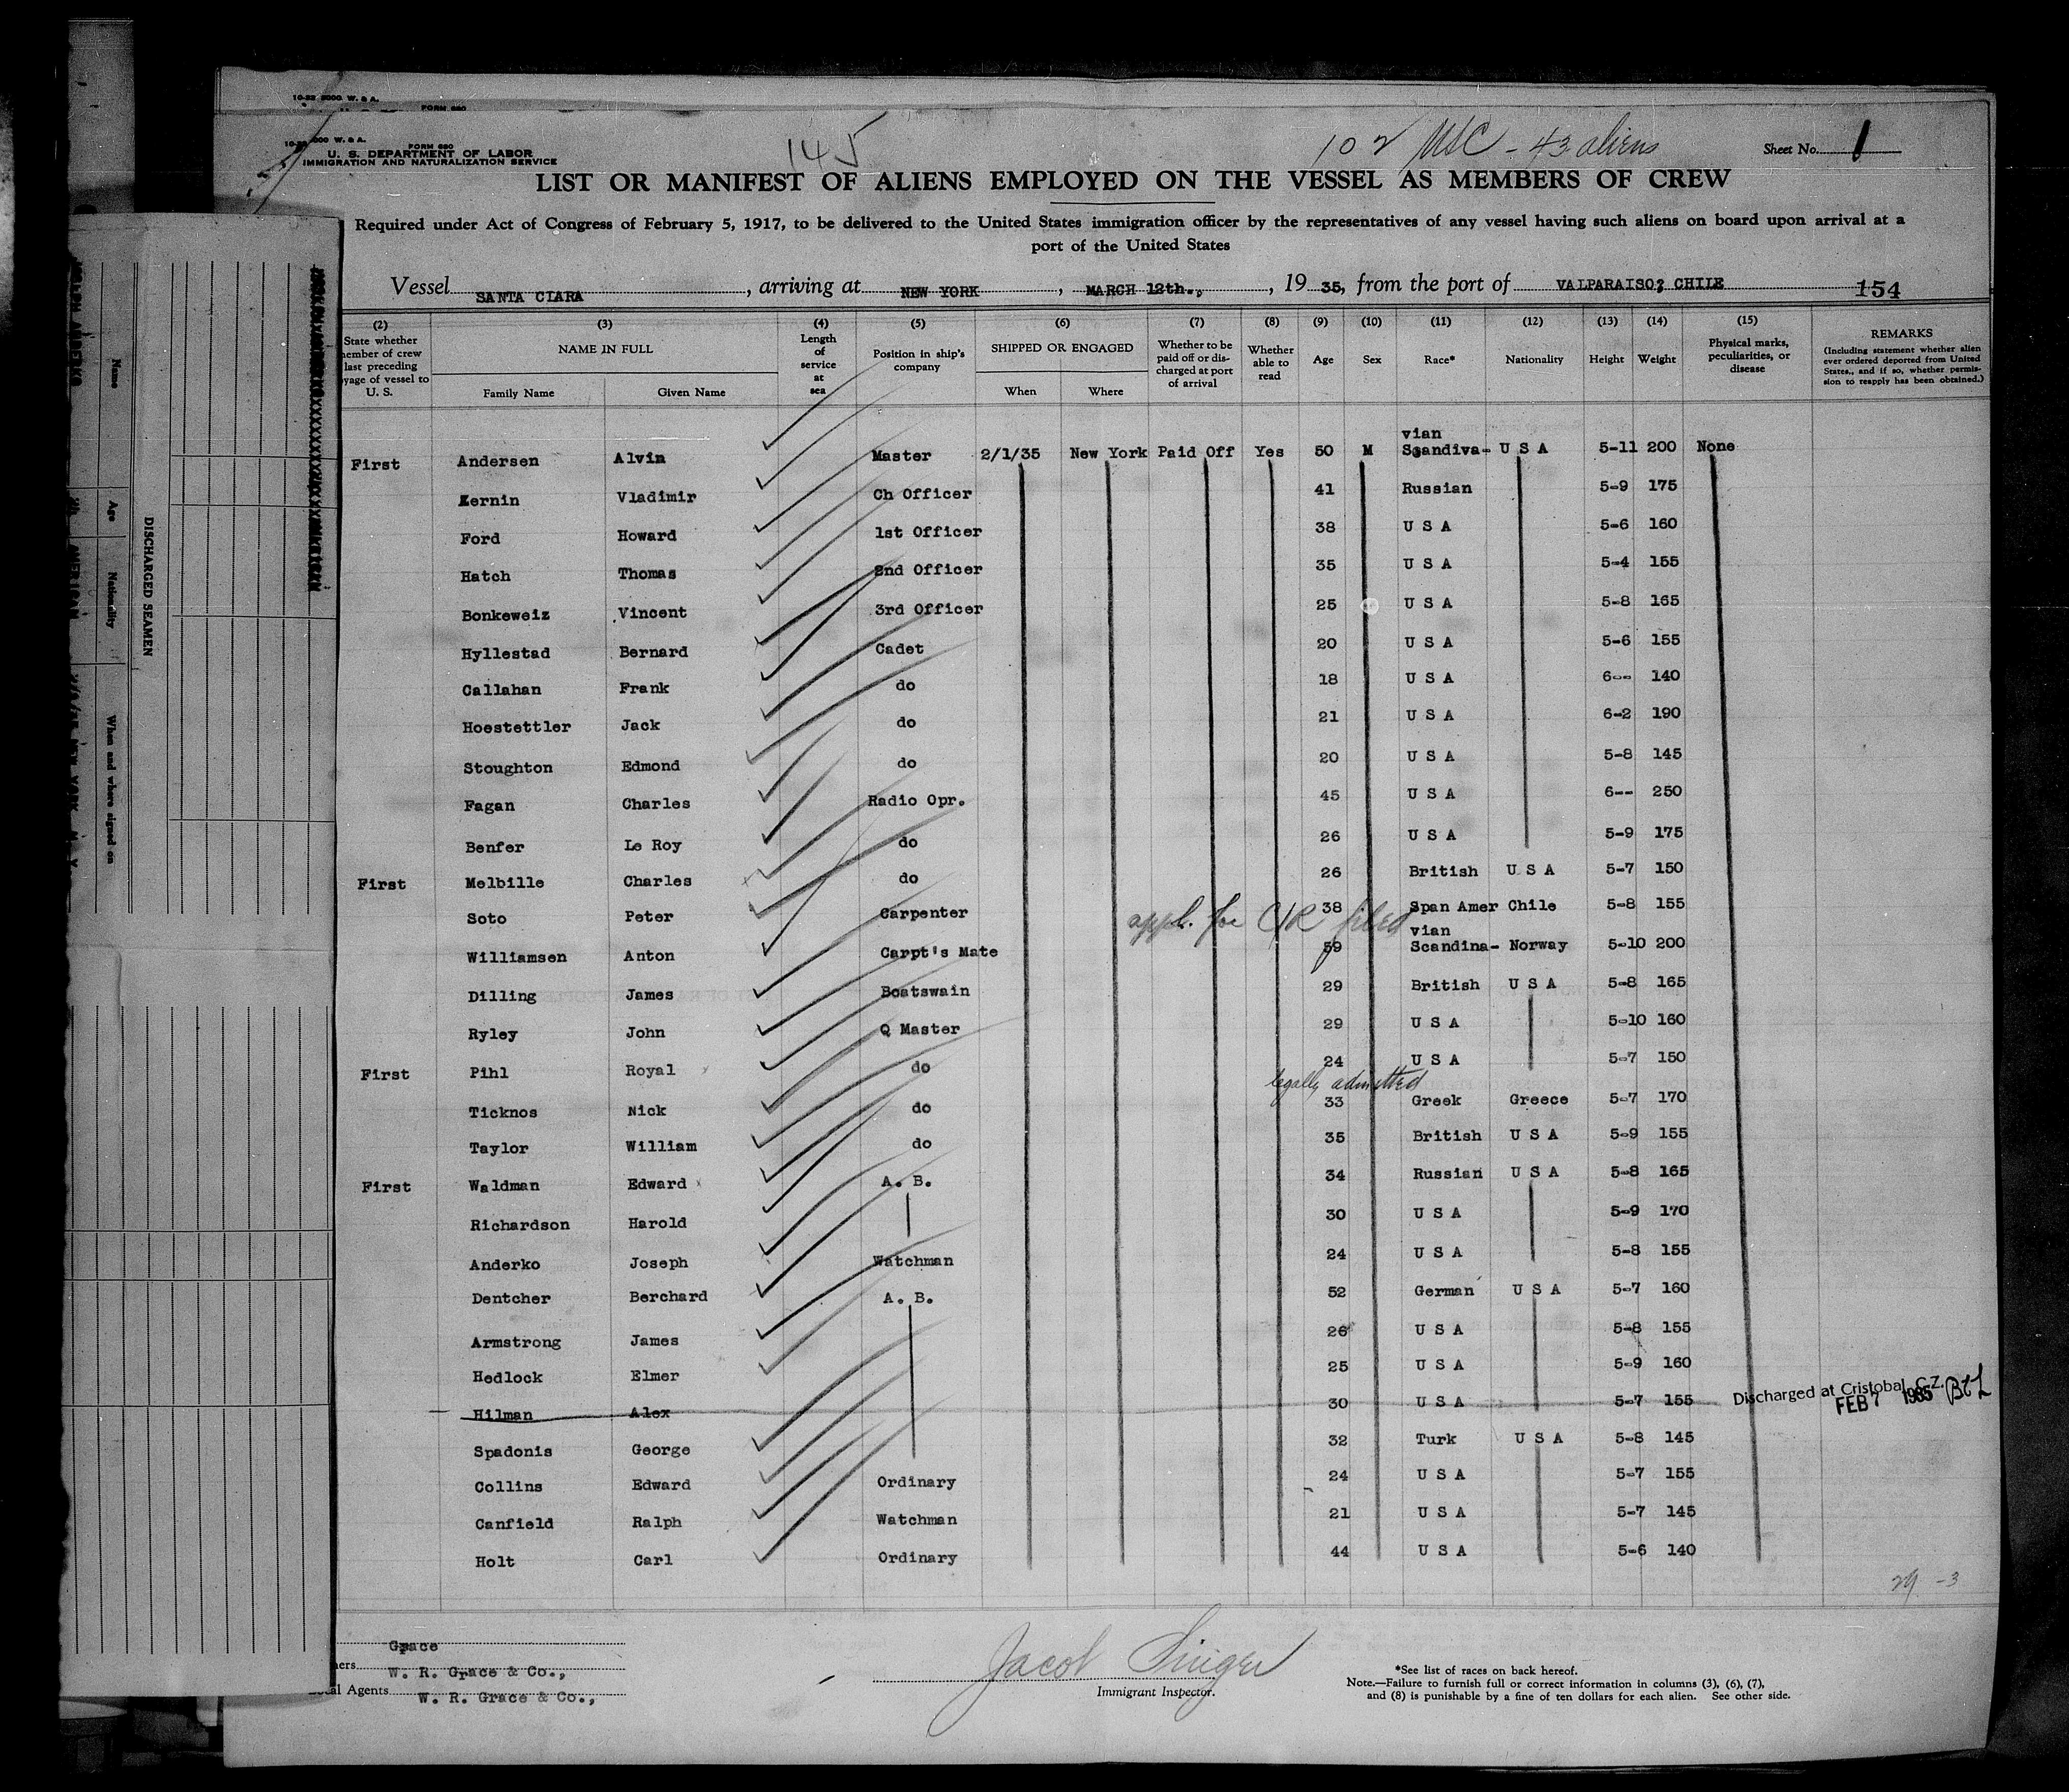 10-32 5000 W. & A.
FORM 680
FORM 680
U. S. DEPARTMENT OF LABOR
IMMIGRATION AND NATURALIZATION SERVICE
145
102 USC - 43 aliens
Sheet No. 1
LIST OR MANIFEST OF ALIENS EMPLOYED ON THE VESSEL AS MEMBERS OF CREW
Required under Act of Congress of February 5, 1917, to be delivered to the United States immigration officer by the representatives of any vessel having such aliens on board upon arrival at a
port of the United States
Vessel SANTA CLARA, arriving at NEW YORK, MARCH 12th., 19 35, from the port of VALPARAISO? CHILE 154
(2) (3) (4) (5) (6) (7) (8) (9) (10) (11) (12) (13) (14) (15)
State whether member of crew last preceding voyage of vessel to U. S.
NAME IN FULL
Family Name
Given Name
Length of service at sea
Position in ship's company
SHIPPED OR ENGAGED
When
Where
Whether to be paid off or discharged at port of arrival
Whether able to read
Age
Sex
Race*
Nationality
Height
Weight
Physical marks, peculiarities, or disease
REMARKS
(Including statement whether alien ever ordered deported from United States., and if so, whether permission to reapply has been obtained.)
First Andersen Alvin Master 2/1/35 New York Paid Off Yes 50 M Scandiva-vian U S A 5-11 200 None
Zernin Vladimir Ch Officer 41 Russian 5-9 175
Ford Howard 1st Officer 38 U S A 5-6 160
Hatch Thomas 2nd Officer 35 U S A 5-4 155
Bonkeweiz Vincent 3rd Officer 25 U S A 5-8 165
Hyllestad Bernard Cadet 20 U S A 5-6 155
Callahan Frank do 18 U S A 6-- 140
Hoestettler Jack do 21 U S A 6-2 190
Stoughton Edmond do 20 U S A 5-8 145
Fagan Charles Radio Opr. 45 U S A 6-- 250
Benfer Le Roy do 26 U S A 5-9 175
First Melbille Charles do 26 British U S A 5-7 150
Soto Peter Carpenter 38 Span Amer Chile 5-8 155
appl. for C/R filed
Williamsen Anton Carpt's Mate 59 Scandina-vian Norway 5-10 200
Dilling James Boatswain 29 British U S A 5-8 165
Ryley John Q Master 29 U S A 5-10 160
First Pihl Royal do 24 U S A 5-7 150
legally admitted
Ticknos Nick do 33 Greek Greece 5-7 170
Taylor William do 35 British U S A 5-9 155
First Waldman Edward A. B. 34 Russian U S A 5-8 165
Richardson Harold 30 U S A 5-9 170
Anderko Joseph Watchman 24 U S A 5-8 155
Dentcher Berchard A. B. 52 German U S A 5-7 160
Armstrong James 26 U S A 5-8 155
Hedlock Elmer 25 U S A 5-9 160
Hilman Alex 30 U S A 5-7 155 Discharged at Cristobal, C.Z. FEB 7 1935
Spadonis George 32 Turk U S A 5-8 145
Collins Edward Ordinary 24 U S A 5-7 155
Canfield Ralph Watchman 21 U S A 5-7 145
Holt Carl Ordinary 44 U S A 5-6 140
29 -3
Grace
W. R. Grace & Co.,
Agents W. R. Grace & Co.,
Jacob Singer
Immigrant Inspector.
*See list of races on back hereof.
Note.—Failure to furnish full or correct information in columns (3), (6), (7),
and (8) is punishable by a fine of ten dollars for each alien. See other side.
DISCHARGED SEAMEN
Name
Age
Nationality
When and where signed on